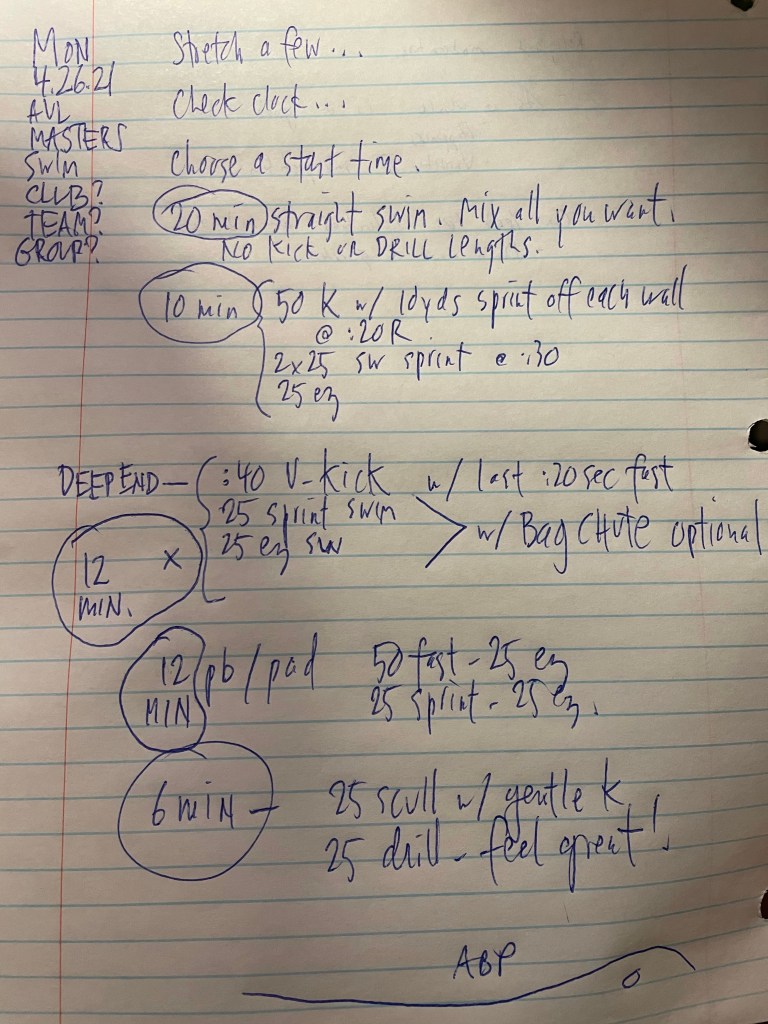 MON
4.26.21
AVL
MASTERS
SWIM
CLUB?
TEAM?
GROUP?
Stretch a few...
Check clock...
Choose a start time.
20 min straight swim. Mix all you want.
NO KICK OR DRILL lengths.
10 min 50 K w/ 10yds sprint off each wall
@ :20R
2x25 sw sprint @ :30
25 ez
DEEP END - :40 V-kick w/ last :20 sec fast
25 sprint swim
25 ez sw
w/ Bag CHUTE optional
12 x
MIN.
12 pb/pad 50 fast - 25 ez
MIN 25 sprint - 25 ez.
6 min - 25 scull w/ gentle k
25 drill - feel great!
ABP